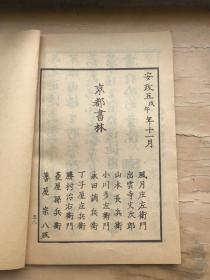 安政五戊午年十一月
京都書林
風月庄左衛門
出雲寺文次郎
山本長兵衛
小川多左衛門
永田調兵衛
丁子屋庄兵衛
勝村治右衛門
菱屋孫兵衛
菩屋宗八